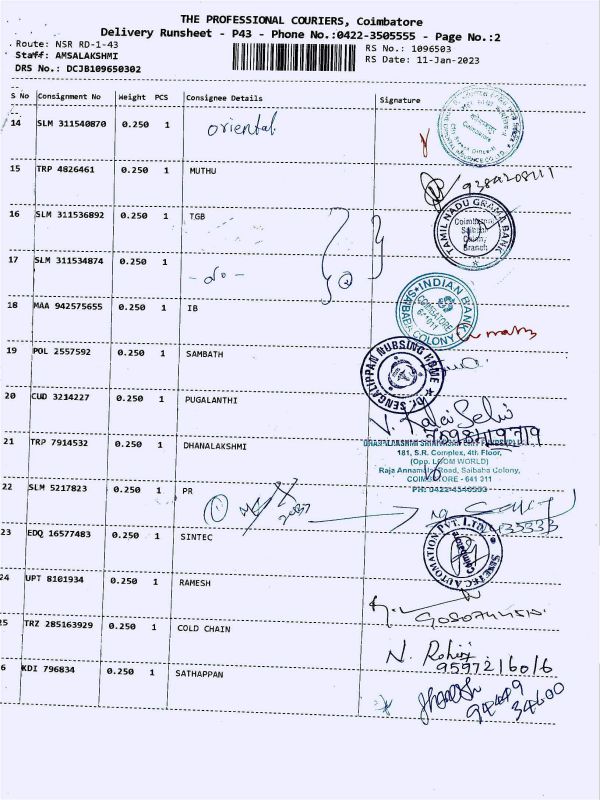 THE PROFESSIONAL COURIERS, Coimbatore
Delivery Runsheet - P43 - Phone No.:0422-3505555 - Page No.:2
Route: NSR RD-1-43
Staff: AMSALAKSHMI
DRS No.: DCJB109650302
RS No.: 1096503
RS Date: 11-Jan-2023
S No Consignment No Weight PCS Consignee Details Signature
14 SLM 311540870 0.250 1 oriental
15 TRP 4826461 0.250 1 MUTHU
16 SLM 311536892 0.250 1 TGB
TAMIL NADU GRAMA BANK
Coimbatore
Saibaba
Colony
Branch
17 SLM 311534874 0.250 1 - do - 2
18 MAA 942575655 0.250 1 IB
INDIAN BANK
COIMBATORE
SAIBABA COLONY
19 POL 2557592 0.250 1 SAMBATH
Dr. SENGALIPPAN NURSING HOME
20 CUD 3214227 0.250 1 PUGALANTHI
V. Kalai Selvi
21 TRP 7914532 0.250 1 DHANALAKSHMI
181, S.R. Complex, 4th Floor,
(Opp. LOOM WORLD)
Raja Annamalai Road, Saibaba Colony,
COIMBATORE - 641 011
22 SLM 5217823 0.250 1 PR 1
23 EDQ 16577483 0.250 1 SINTEC
AUTOMATION PVT. LTD.
Coimbatore
24 UPT 8101934 0.250 1 RAMESH
25 TRZ 285163929 0.250 1 COLD CHAIN
N. Rohini
9597216016
6 KDI 796834 0.250 1 SATHAPPAN
34600